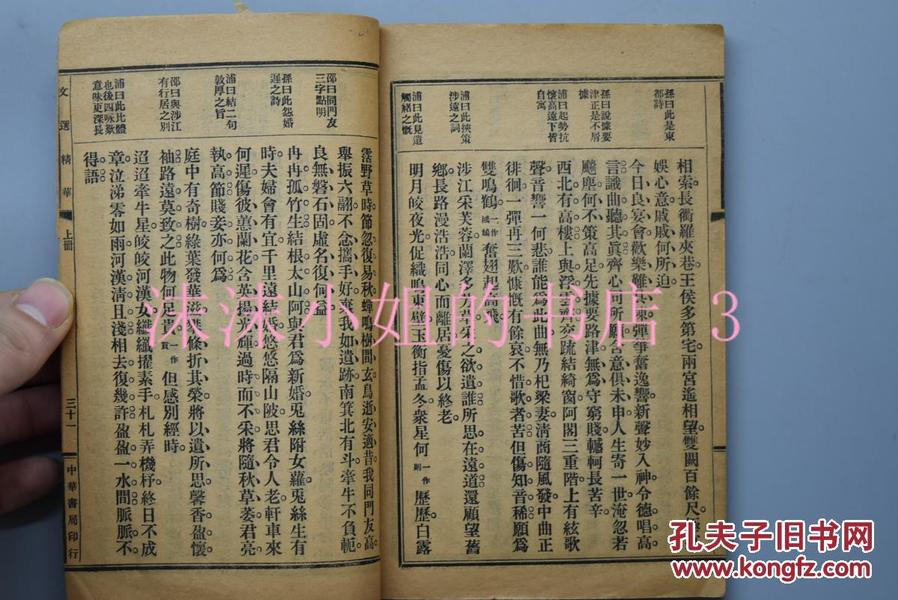 孫曰此是東
都詩
孫曰說據要
津正是不屑
據
浦曰起勢抗
懷高遠下皆
自寓
浦曰此挾策
涉遠之詞
浦曰此見遺
觸緒之慨
相索長衢羅夾巷王侯多第宅兩宮遙相望雙闕百餘尺
娛心意戚戚何所迫
今日良宴會歡樂難具陳彈箏奮逸響新聲妙入神令德唱高
言識曲聽其眞齊心同所願含意俱未申人生寄一世淹忽若
飈塵何不策高足先據要路津無爲守窮賤轗軻長苦辛
西北有高樓上與浮雲齊交疏結綺窗阿閣三重階上有絃歌
聲音響一何悲誰能爲此曲無乃杞梁妻清商隨風發中曲正
徘徊一彈再三歎慷慨有餘哀不惜歌者苦但傷知音稀願爲
雙鳴鶴一作奮翅起高飛
涉江采芙蓉蘭澤多芳草采之欲遺誰所思在遠道還顧望舊
鄉長路漫浩浩同心而離居憂傷以終老
明月皎夜光促織鳴東壁玉衡指孟冬衆星何一作歷歷白露
邵曰同門友
三字點明
孫曰此怨婚
遲之詩
浦曰結二句
敦厚之旨
邵曰與涉江
有行居之別
浦曰此比體
也後四咏歎
意味更深長
霑野草時節忽復易秋蟬鳴樹間玄鳥逝安適昔我同門友高
舉振六翮不念攜手好棄我如遺跡南箕北有斗牽牛不負軛
良無磐石固虛名復何益
冉冉孤竹生結根太山阿與君爲新婚兎絲附女蘿兎絲生有
時夫婦會有宜千里遠結婚悠悠隔山陂思君令人老軒車來
何遲傷彼蕙蘭花含英揚光輝過時而不采將隨秋草萎君亮
執高節賤妾亦何爲
庭中有奇樹綠葉發華滋攀條折其榮將以遺所思馨香盈懷
袖路遠莫致之此物何足貴一作貢但感別經時
迢迢牽牛星皎皎河漢女纖纖擢素手札札弄機杼終日不成
章泣涕零如雨河漢清且淺相去復幾許盈盈一水間脈脈不
得語
文選精華 上冊 三十一 中華書局印行
沐沐小姐的书店 3
孔夫子旧书网
www.kongfz.com